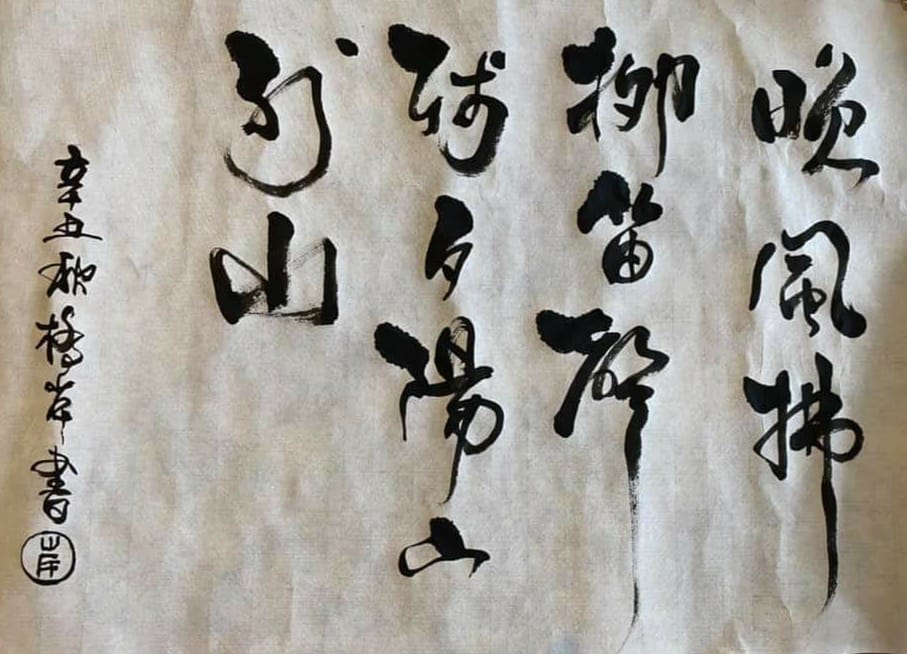 晚風拂
柳笛聲
殘夕陽山
外山
辛丑秋橋岸書
岸